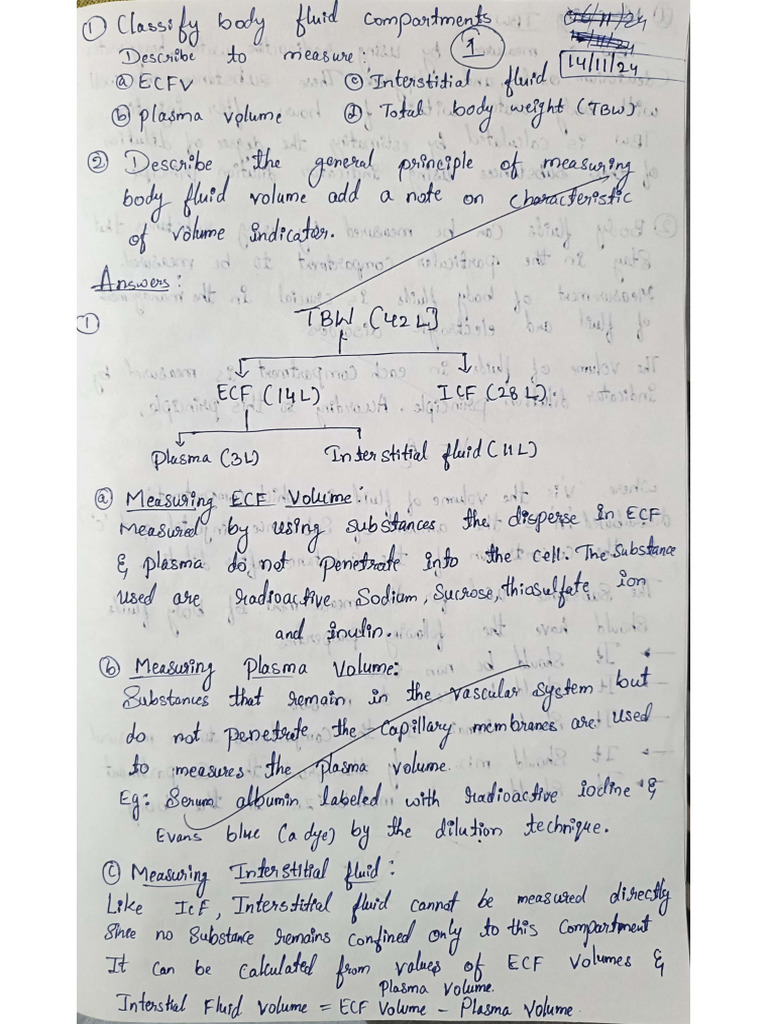 ① Classify body fluid compartments
Describe to measure:
①
14/11/24
ⓐ ECFV
ⓒ Interstitial fluid
ⓑ plasma volume
ⓓ Total body weight (TBW)
② Describe the general principle of measuring
body fluid volume add a note on characteristic
of volume indicator.
Answers:
①
TBW (42L)
ECF (14L)
ICF (28L).
Plasma (3L)
Interstitial fluid (11L)
ⓐ Measuring ECF Volume:
Measured by using substances the disperse in ECF
& plasma do not penetrate into the cell. The Substance
used are radioactive Sodium, Sucrose, thiosulfate ion
and inulin.
ⓑ Measuring Plasma Volume:
Substances that remain in the vascular system but
do not penetrate the Capillary membranes are used
to measures the plasma volume.
Eg: Serum albumin labeled with radioactive iodine &
Evans blue (a dye) by the dilution technique.
ⓒ Measuring Interstitial fluid:
Like ICF, Interstitial fluid cannot be measured directly
Since no Substance remains confined only to this Compartment
It can be Calculated from values of ECF Volumes &
Plasma Volume.
Interstial Fluid Volume = ECF Volume - Plasma Volume.